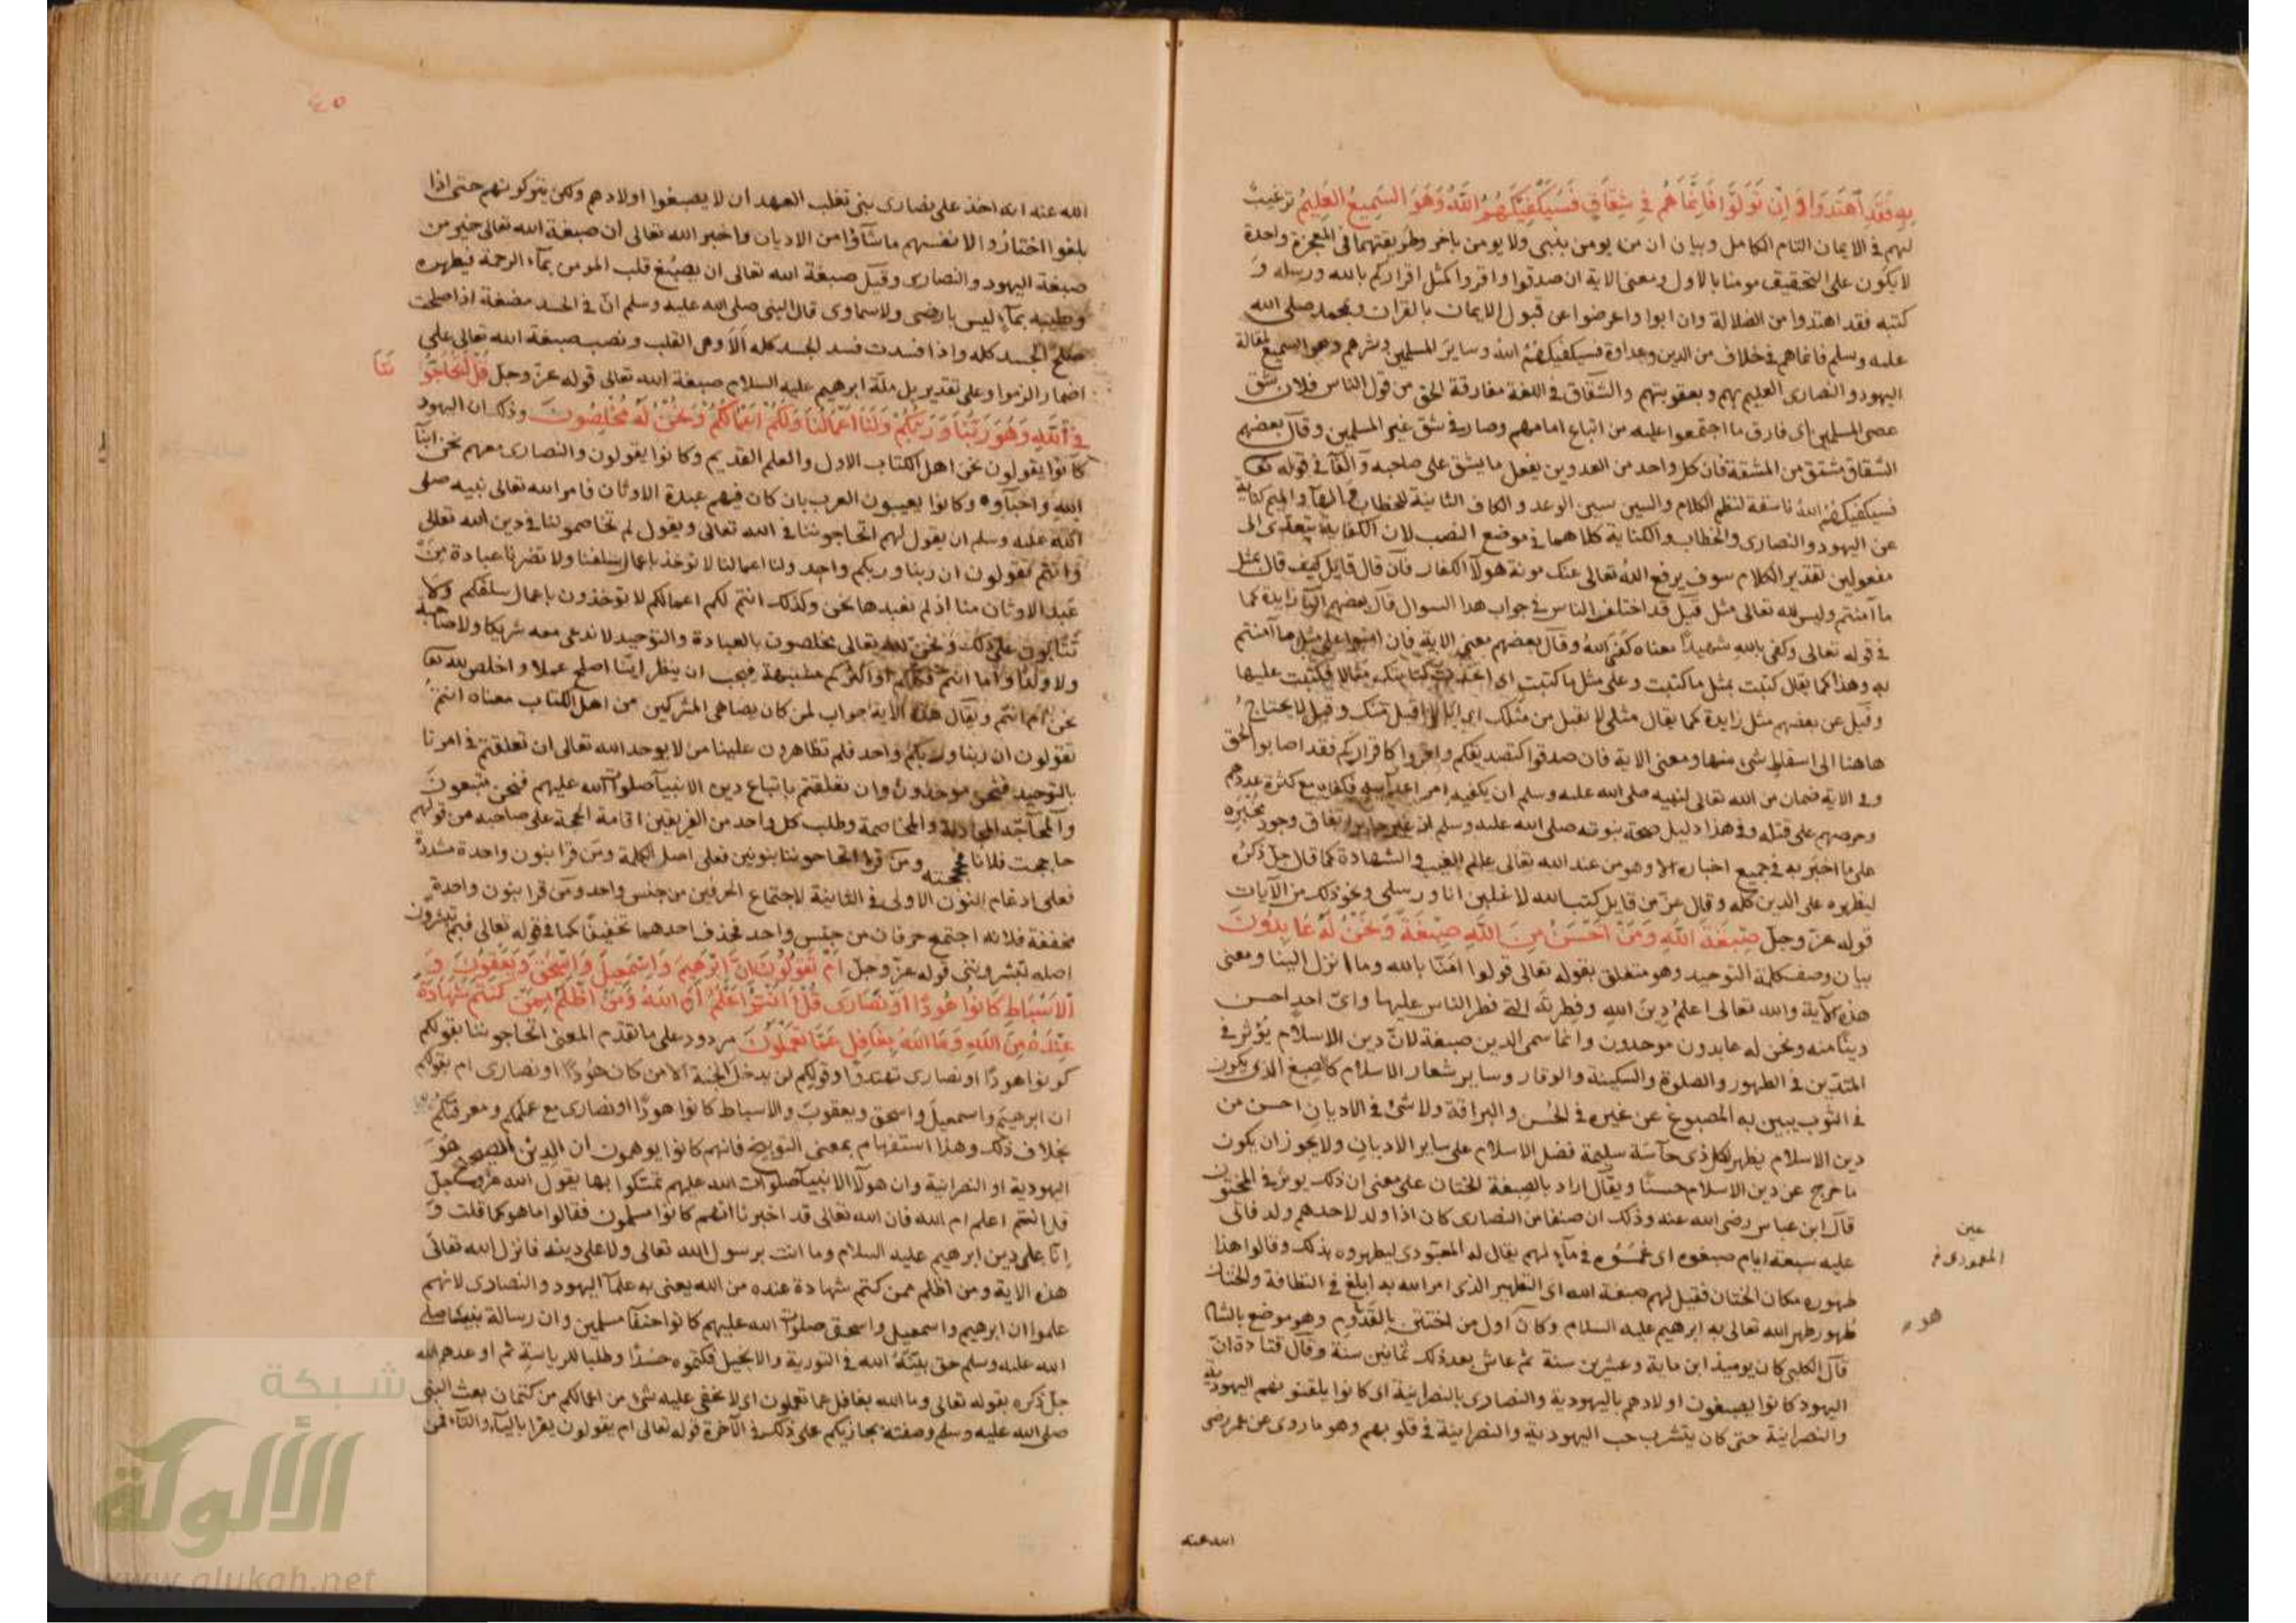 بِهِ فَقَدِ آهْتَدَوْا وَاِنْ تَوَلَّوْا فَاِنَّمَا هُمْ فِي شِقَاقٍ فَسَيَكْفِيكَهُمُ اللَّهُ وَهُوَ السَّمِيعُ العَلِيمُ ترغيبٌ
لهم في الايمان التام الكامل وبيان ان من يومن بنبي ولا يومن باخر وطريقتهما في المعجزة واحدة
لا يكون على التحقيق مومنا بالاول ومعنى الاية ان صدقوا واقروا كمثل اقراركم بالله ورسله و
كتبه فقد اهتدوا من الضلالة وان ابوا واعرضوا عن قبول الايمان بالقران وبمحمد صلى الله
عليه وسلم فانما هم في خلاف من الدين وعداوة فسيكفيكهُمُ اللهُ وسايرَ المسلمين وشرهم وهو السميع لمقالة
اليهود والنصارى العليم بهم وبعقوبتهم والشقاق في اللغة مفارقة الحق من قول الناس فلان شق
عصى المسلمين اى فارق ما اجتمعوا عليه من اتباع امامهم وصار في شق غير المسلمين وقال بعضهم
الشقاق مشتق من المشقة فان كل واحد من العدوين يفعل ما يشق على صاحبه والفآ في قوله تعا
فسيكفيكهُمُ اللهُ ناسقة لنظم الكلام والسين سين الوعد والكاف الثانية للخطاب والهآ والميم كناية
عن اليهود والنصارى والخطاب والكناية كلاهما في موضع النصب لان الكفاية يتعدى الى
مفعولين تقدير الكلام سوف يرفع اللهُ تعالى عنك مونة هولآ الكفار فان قال قايل كيف قال بمثل
ما آمنتم وليس لله تعالى مثل قيل قد اختلف الناس في جواب هذا السوال قال بعضهم البآ زايدة كما
في قوله تعالى وكفى بالله شهيدًا معناه كفى اللهُ وقال بعضهم معنى الاية فان امنوا على مثل ما آمنتم
به وهذا كما يقال كتبت بمثل ما كتبت وعلى مثل ما كتبت اى كتابتك مثالا فكتبت عليها
وقيل عن بعضهم مثل زايدة كما يقال مثلى لا يقبل من مثلك اى انا لا اقبل منك وقيل لا يحتاج
هاهنا الى اسقاط شى منها ومعنى الاية فان صدقوا كتصديقكم واقروا كاقراركم فقد اصابوا الحق
وفى الاية ضمان من الله تعالى لنبيه صلى الله عليه وسلم ان يكفيه امر اعدآيه فكفاه مع كثرة عددهم
وحرصهم على قتله وفي هذا دليل صحة نبوته صلى الله عليه وسلم لان غير جايز اتفاق وجود مُخْبَرِه
على ما اخبر به في جميع اخباره الا وهو من عند الله تعالى عالم الغيب والشهادة كما قال جلّ ذكرُه
ليظهره على الدين كله وقال عزّ من قايل كتب الله لاغلبن انا ورسلى ونحو ذلك من الآيات
قوله عزّ وجلّ صِبْغَةَ اللَّهِ وَمَنْ اَحْسَنُ مِنَ اللَّهِ صِبْغَةً وَنَحْنُ لَهُ عَابِدُونَ
بيان وصف كلمة التوحيد وهو متعلق بقوله تعالى قولوا امَنّا بالله وما انزل الينا ومعنى
هذه الآية والله تعالى اعلم دِينَ الله وفِطرتَه التى فطر الناس عليها واىّ احدٍ احسن
دينًا منه ونحن له عابدون موحدون وانما سمى الدين صبغة لانّ دين الاسلام يُؤثر في
المتدّين في الطهور والصلوة والسكينة والوقار وساير شعار الاسلام كالصبغ الذى يكون
في الثوب يبين به المصبوغ عن غيره في الحُسن والبراقة ولا شئ في الاديان احسن من
دين الاسلام يظهر لكل ذى حآسّة سليمة فضل الاسلام على ساير الاديان ولا يجوز ان يكون
ما خرج عن دين الاسلام حسنًا ويقال اراد بالصبغة الختان على معنى ان ذلك يوثر في المختون
قال ابن عباس رضى الله عنه وذلك ان صنفا من النصارى كان اذا ولد لاحدهم ولد فاتى
عليه سبعة ايام صبغوه اى غمسُوُه في مآء لهم يقال له المعبودى ليطهروه بذلك وقالوا هذا
طهوره مكان الختان فقيل لهم صبغة الله اى التطهير الذى امر الله به ابلغ في النظافة والختان
طُهور طهر الله تعالى به ابرهيم عليه السلام وكان اول من اختتن بالقَدُّوم وهو موضع بالشام
قال الكلبى كان يوميذ ابن ماية وعشرين سنة ثم عاش بعد ذلك ثمانين سنة وقال قتادة ان
اليهود كانوا يصبغون اولادهم باليهودية والنصارى بالنصرانية اى كانوا يلقنونهم اليهودية
والنصرانية حتى كان يتشرب حب اليهودية والنصرانية في قلوبهم وهو ما روى عن عمر رضى
عين
المعمودى
هو
الله عنه
٤٥
الله عنه انه اخذ على نصارى بنى تغلب العهد ان لا يصبغوا اولادهم ولكن يتركونهم حتى اذا
بلغوا اختاروا لانفسهم ما شآؤا من الاديان واخبر الله تعالى ان صبغة الله تعالى خير من
صبغة اليهود والنصارى وقيل صبغة الله تعالى ان يصبُغ قلب المومن بمآء الرحمة فيطهره
وطيبه بمآء ليس بارضى ولا سماوى قال النبى صلى الله عليه وسلم انّ في الجسد مضغة اذا صلحت
صلح الجسد كله واذا فسدت فسد الجسد كله اَلَا وهى القلب ونصب صبغة الله تعالى على
اضمار الزموا وعلى تقدير بل ملّة ابرهيم عليه السلام صبغة الله تعالى قوله عزّ وجلّ قُلْ اَتُحَاجُّو نَنَا
فِي اَللَّهِ وَهُوَ رَبُّنَا وَرَبُّكُمْ وَلَنَا اَعْمَالُنَا وَلَكُمْ اَعْمَالُكُمْ وَنَحْنُ لَهُ مُخْلِصُونَ وذلك ان اليهود
كانوا يقولون نحن اهل الكتاب الاول والعلم القديم وكانوا يقولون والنصارى معهم نحن ابنآ
الله واحبآوه وكانوا يعيبون العرب بان كان فيهم عبدة الاوثان فامر الله تعالى نبيه صلى
الله عليه وسلم ان يقول لهم اتحاجوننا في الله تعالى ويقول لم تخاصموننا في دين الله تعالى
وانتم تقولون ان ربنا وربكم واحد ولنا اعمالنا لا نوخذ باعمال سلفنا ولا تضرنا عبادة مَنْ
عَبَد الاوثان منا اذ لم نعبدها نحن وكذلك انتم لكم اعمالكم لا توخذون باعمال سلفكم ولا
تثابون على ذلك ونحن لله تعالى مخلصون بالعبادة والتوحيد لا ندعى معه شريكا ولا صاحبة
ولا ولدًا واما انتم فكلكم او اكثركم مشبهة فيجب ان ينظر ايّنا اصلح عملا واخلص لله تعا
نحن ام انتم ويقال هذه الاية جواب لمن كان يضاهى المشركين من اهل الكتاب معناه انتم
تقولون ان ربنا وربكم واحد فلم تظاهرون علينا من لا يوحد الله تعالى ان تعلقتم في امرنا
بالتوحيد فنحن موحدون وان تعلقتم باتباع دين الانبيآ صلوات الله عليهم فنحن متبعون
والمحآجّه المجادلة والمخاصمة وطلب كل واحد من الفريقين اقامة الحجة على صاحبه من قولهم
حاججت فلانا فحججته ومن قرا اتحاجوننا بنونين فعلى اصل الكلمة ومن قرا بنون واحدة مشددة
فعلى ادغام النون الاولى في الثانية لاجتماع الحرفين من جنس واحد ومن قرا بنون واحدة
مخففة فلانه اجتمع حرفان من جنس واحد فحذف احدهما تخفيفًا كما في قوله تعالى فبم تبشرون
اصله تبشروننى قوله عزّ وجلّ اَمْ تَقُولُونَ اِنَّ اِبْرٰهِيمَ وَاِسْمٰعِيلَ وَاِسْحٰقَ وَيَعْقُوبَ وَ
الْاَسْبَاطَ كَانُوا هُودًا اَوْ نَصَارَى قُلْ اَاَنْتُمْ اَعْلَمُ اَمِ اللَّهُ وَمَنْ اَظْلَمُ مِمَّنْ كَتَمَ شَهَادَةً
عِنْدَهُ مِنَ اللَّهِ وَمَا اللَّهُ بِغَافِلٍ عَمَّا تَعْمَلُونَ مردود على ما تقدم المعنى اتحاجوننا بقولكم
كونوا هودًا او نصارى تهتدوا وقولكم لن يدخل الجنة الا من كان هُودًا او نصارى ام بقولكم
ان ابرهيم واسمعيل واسحق ويعقوب والاسباط كانوا هودًا او نصارى مع علمكم ومعرفتكم
بخلاف ذلك وهذا استفهام بمعنى التوبيخ فانهم كانوا يوهمون ان الدين الصحيح هُوَ
اليهودية او النصرانية وان هولآ الانبيآ صلوات الله عليهم تمسّكوا بها يقول الله عزّ وجلّ
قل اانتم اعلم ام الله فان الله تعالى قد اخبرنا انهم كانوا مسلمون فقالوا ما هو كما قلت و
اِنّا على دين ابرهيم عليه السلام وما انت برسول الله تعالى ولا على دينه فانزل الله تعالى
هذه الاية ومن اظلم ممن كتم شهادة عنده من الله يعنى به علمآ اليهود والنصارى لانهم
علموا ان ابرهيم واسمعيل واسحق صلوات الله عليهم كانوا حنفآ مسلمين وان رسالة نبينا صلى
الله عليه وسلم حق بيّنَهُ الله في التورية والانجيل فكتموه حَسَدًا وطلبا للرياسة ثم اوعدهم الله
جلّ ذكره بقوله تعالى وما الله بغافل عما تعملون اى لا يخفى عليه شئ من اعمالكم من كتمان بعث النبى
صلى الله عليه وسلم وصفته يجازيكم على ذلك في الآخرة قوله تعالى ام يقولون يقرا باليآء والتآء فمن
شبكة
الألوكة
www.alukah.net